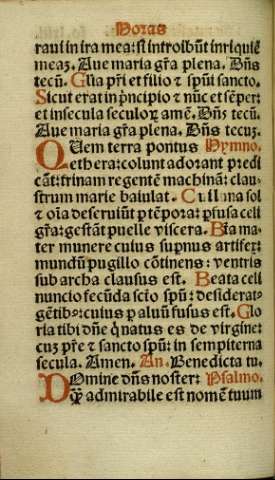 Horas
raui in ira mea: si introibũt inr̃iquiẽ
meaʒ. Aue maria gr̃a plena. Dñs
tecũ. Gl̃ia pr̃i et filio ⁊ spũi sancto.
Sicut erat in p̃ncipio ⁊ nũc et sẽper:
et in secula seculoꝝ amẽ. Dñs tecũ.
Aue maria gr̃a plena. Dñs tecuʒ.
QUem terra pontus Hymno.
ethera: colunt adorant predi
cãt: trinam regentẽ machinã: clau
strum marie baiulat. Cui luna sol
⁊ oĩa deseruiũt ꝑ tẽpora: ꝑfusa celi
gr̃a: gestãt puelle viscera. Bt̃a ma-
ter munere cuius supnus artifex:
mundũ pugillo cõtinens: ventris
sub archa clausus est. Beata celi
nuncio fecũda sct̃o spũ: desiderat
gẽtibꝰ: cuius ꝑ aluũ fusus est. Glo
ria tibi dñe q̃ natus es de virgine:
cuʒ pr̃e ⁊ sancto spũ: in sempiterna
secula. Amen. An. Benedicta tu.
DOmine dñs noster: Psalmo.
q̃ʒ admirabile est nomẽ tuum